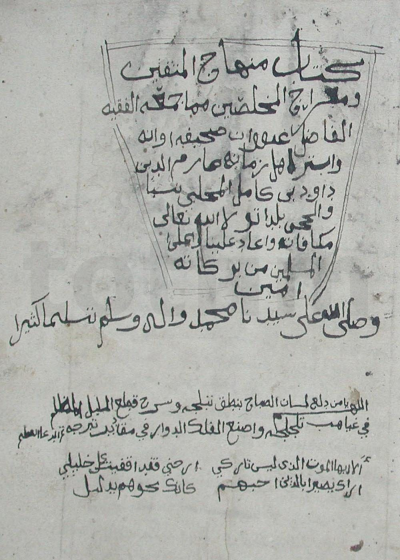 كتاب منهاج المتقين
ومعراج المخلصين مما جمعه الفقيه
الفاضل عنوان صحيفه اوانه
واستر اهل زمانه صارم الدين
داود بن كامل المحلي نسبا
والحجي بلدا تولا الله تعالى
مكافاته واعاد علينا وعلى
المسلمين من بركاته
امين
وصلى الله على سيدنا محمد واله وسلم تسليما كثيرا
اللهم يا من دلع لسان الصباح بنطق تبلجه وسرح قطع الليل المظلم
في غياهب تلجلجه واصنع الفلك الدوار في مقادير تبرجه
الا ايها الموت الذي ليس تاركي ارحني فقد افنيت كل خليلي
اراك بصيرا بالذين احبهم كانك نحوهم بدليل